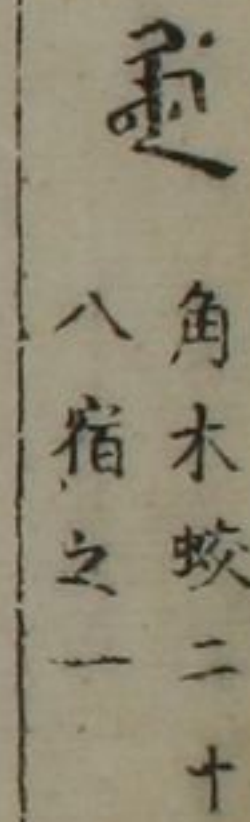 角木蛟二十
八宿之一